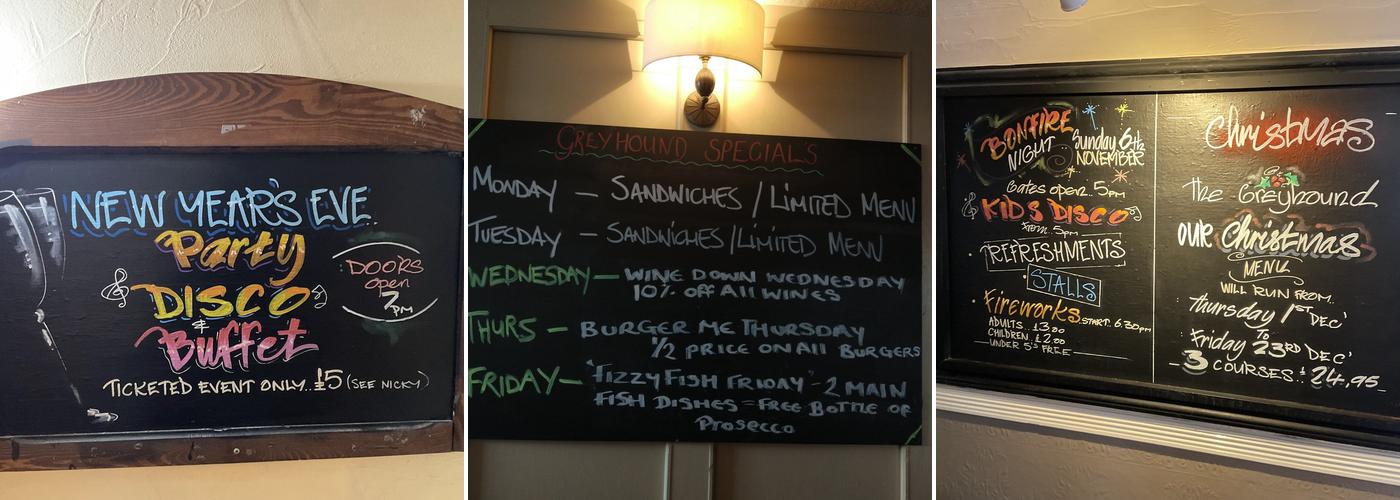 NEW YEAR'S EVE..
Party
DISCO
&
Buffet
DOORS
Open
7PM
TICKETED EVENT ONLY..£5 (SEE NICKY)
GREYHOUND SPECIALS
MONDAY — SANDWICHES / LIMITED MENU
TUESDAY — SANDWICHES / LIMITED MENU
WEDNESDAY — WINE DOWN WEDNESDAY
10% OFF All WINES
THURS — BURGER ME THURSDAY
1/2 PRICE ON All BURGERS
FRIDAY — 'FIZZY FISH FRIDAY' - 2 MAIN
FISH DISHES = FREE BOTTLE OF
Prosecco
BONFIRE
NIGHT
Sunday 6th
NOVEMBER
Gates open. 5pm
KIDS DISCO
From. 5pm
REFRESHMENTS
STALLS
Fireworks. START. 6.30pm
ADULTS.. £3.00
CHILDREN.. £2.00
UNDER 5'S FREE
Christmas
The Greyhound
OUR Christmas
MENU
WILL RUN FROM..
Thursday 1ST DEC'
To
Friday 23RD DEC'
3 COURSES.. £24.95